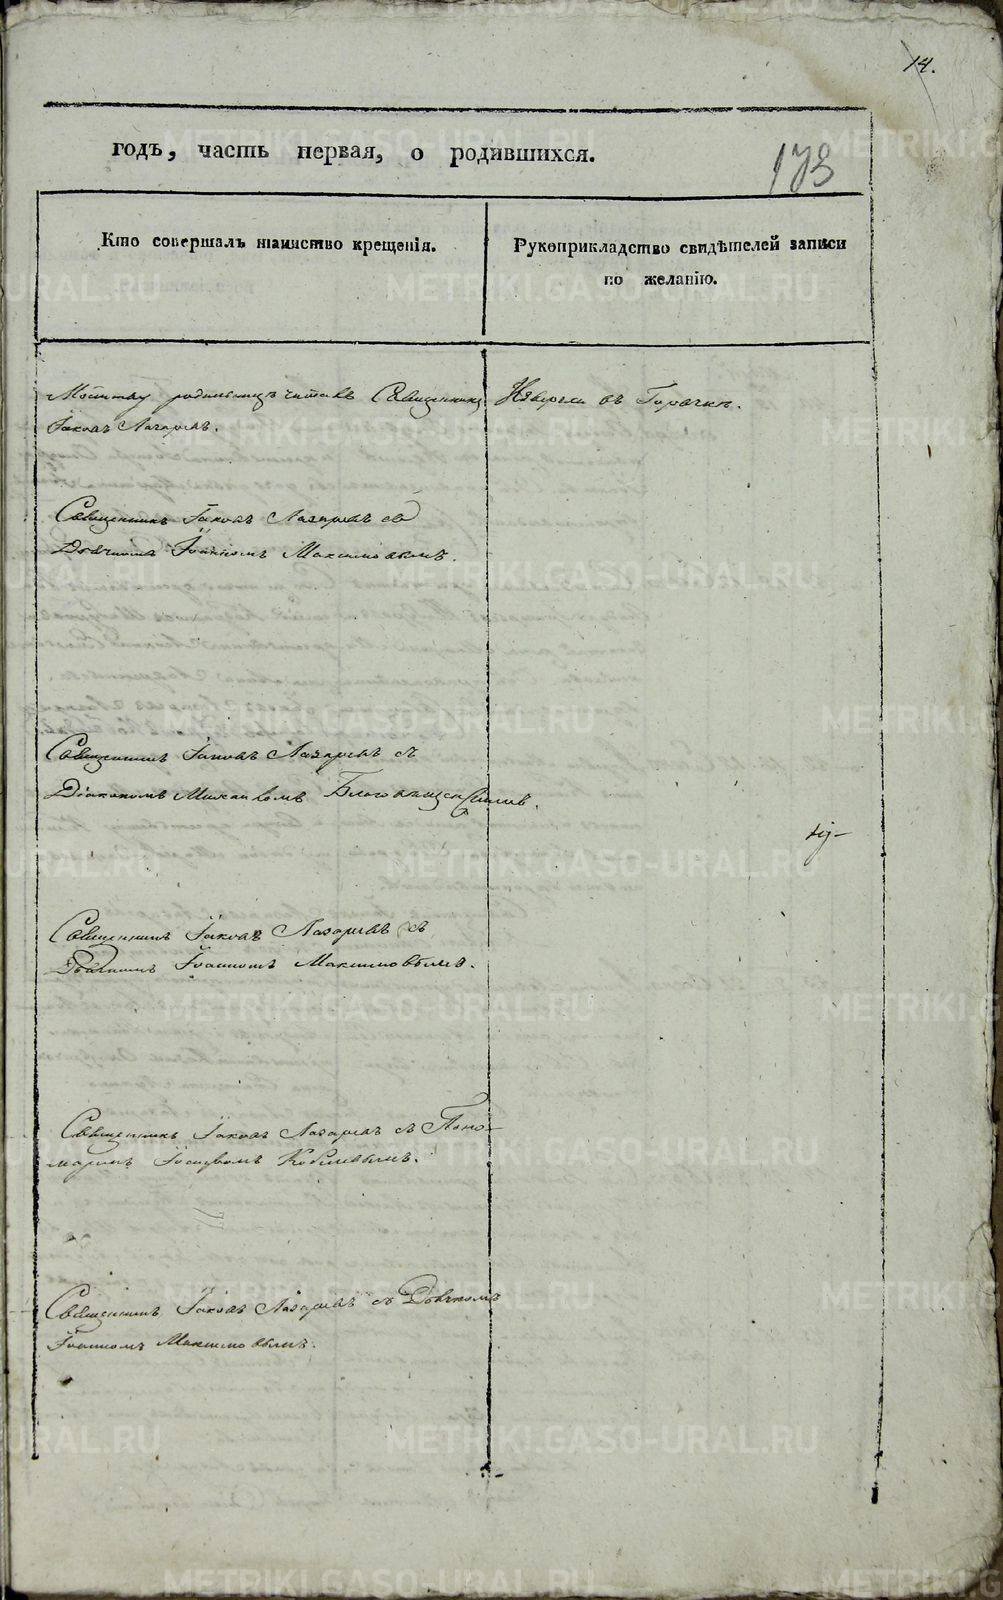 14.
годъ, часть первая, о родившихся.
173
Кто совершалъ таинство крещенія.
Рукоприкладство свидѣтелей записи
по желанію.
Молитву родильницѣ читалъ Священникъ
Іаковъ Лазаревъ.
Священникъ Іаковъ Лазаревъ съ
Дьячкомъ Іоанномъ Максимовымъ.
Священникъ Іаковъ Лазаревъ съ
Діакономъ Михаиломъ
Священникъ Іаковъ Лазаревъ съ
Дьячкомъ Іоанномъ Максимовымъ.
Священникъ Іаковъ Лазаревъ съ Поно-
маремъ
Священникъ Іаковъ Лазаревъ съ Дьячкомъ
Іоанномъ Максимовымъ.
METRIKI.GASO-URAL.RU